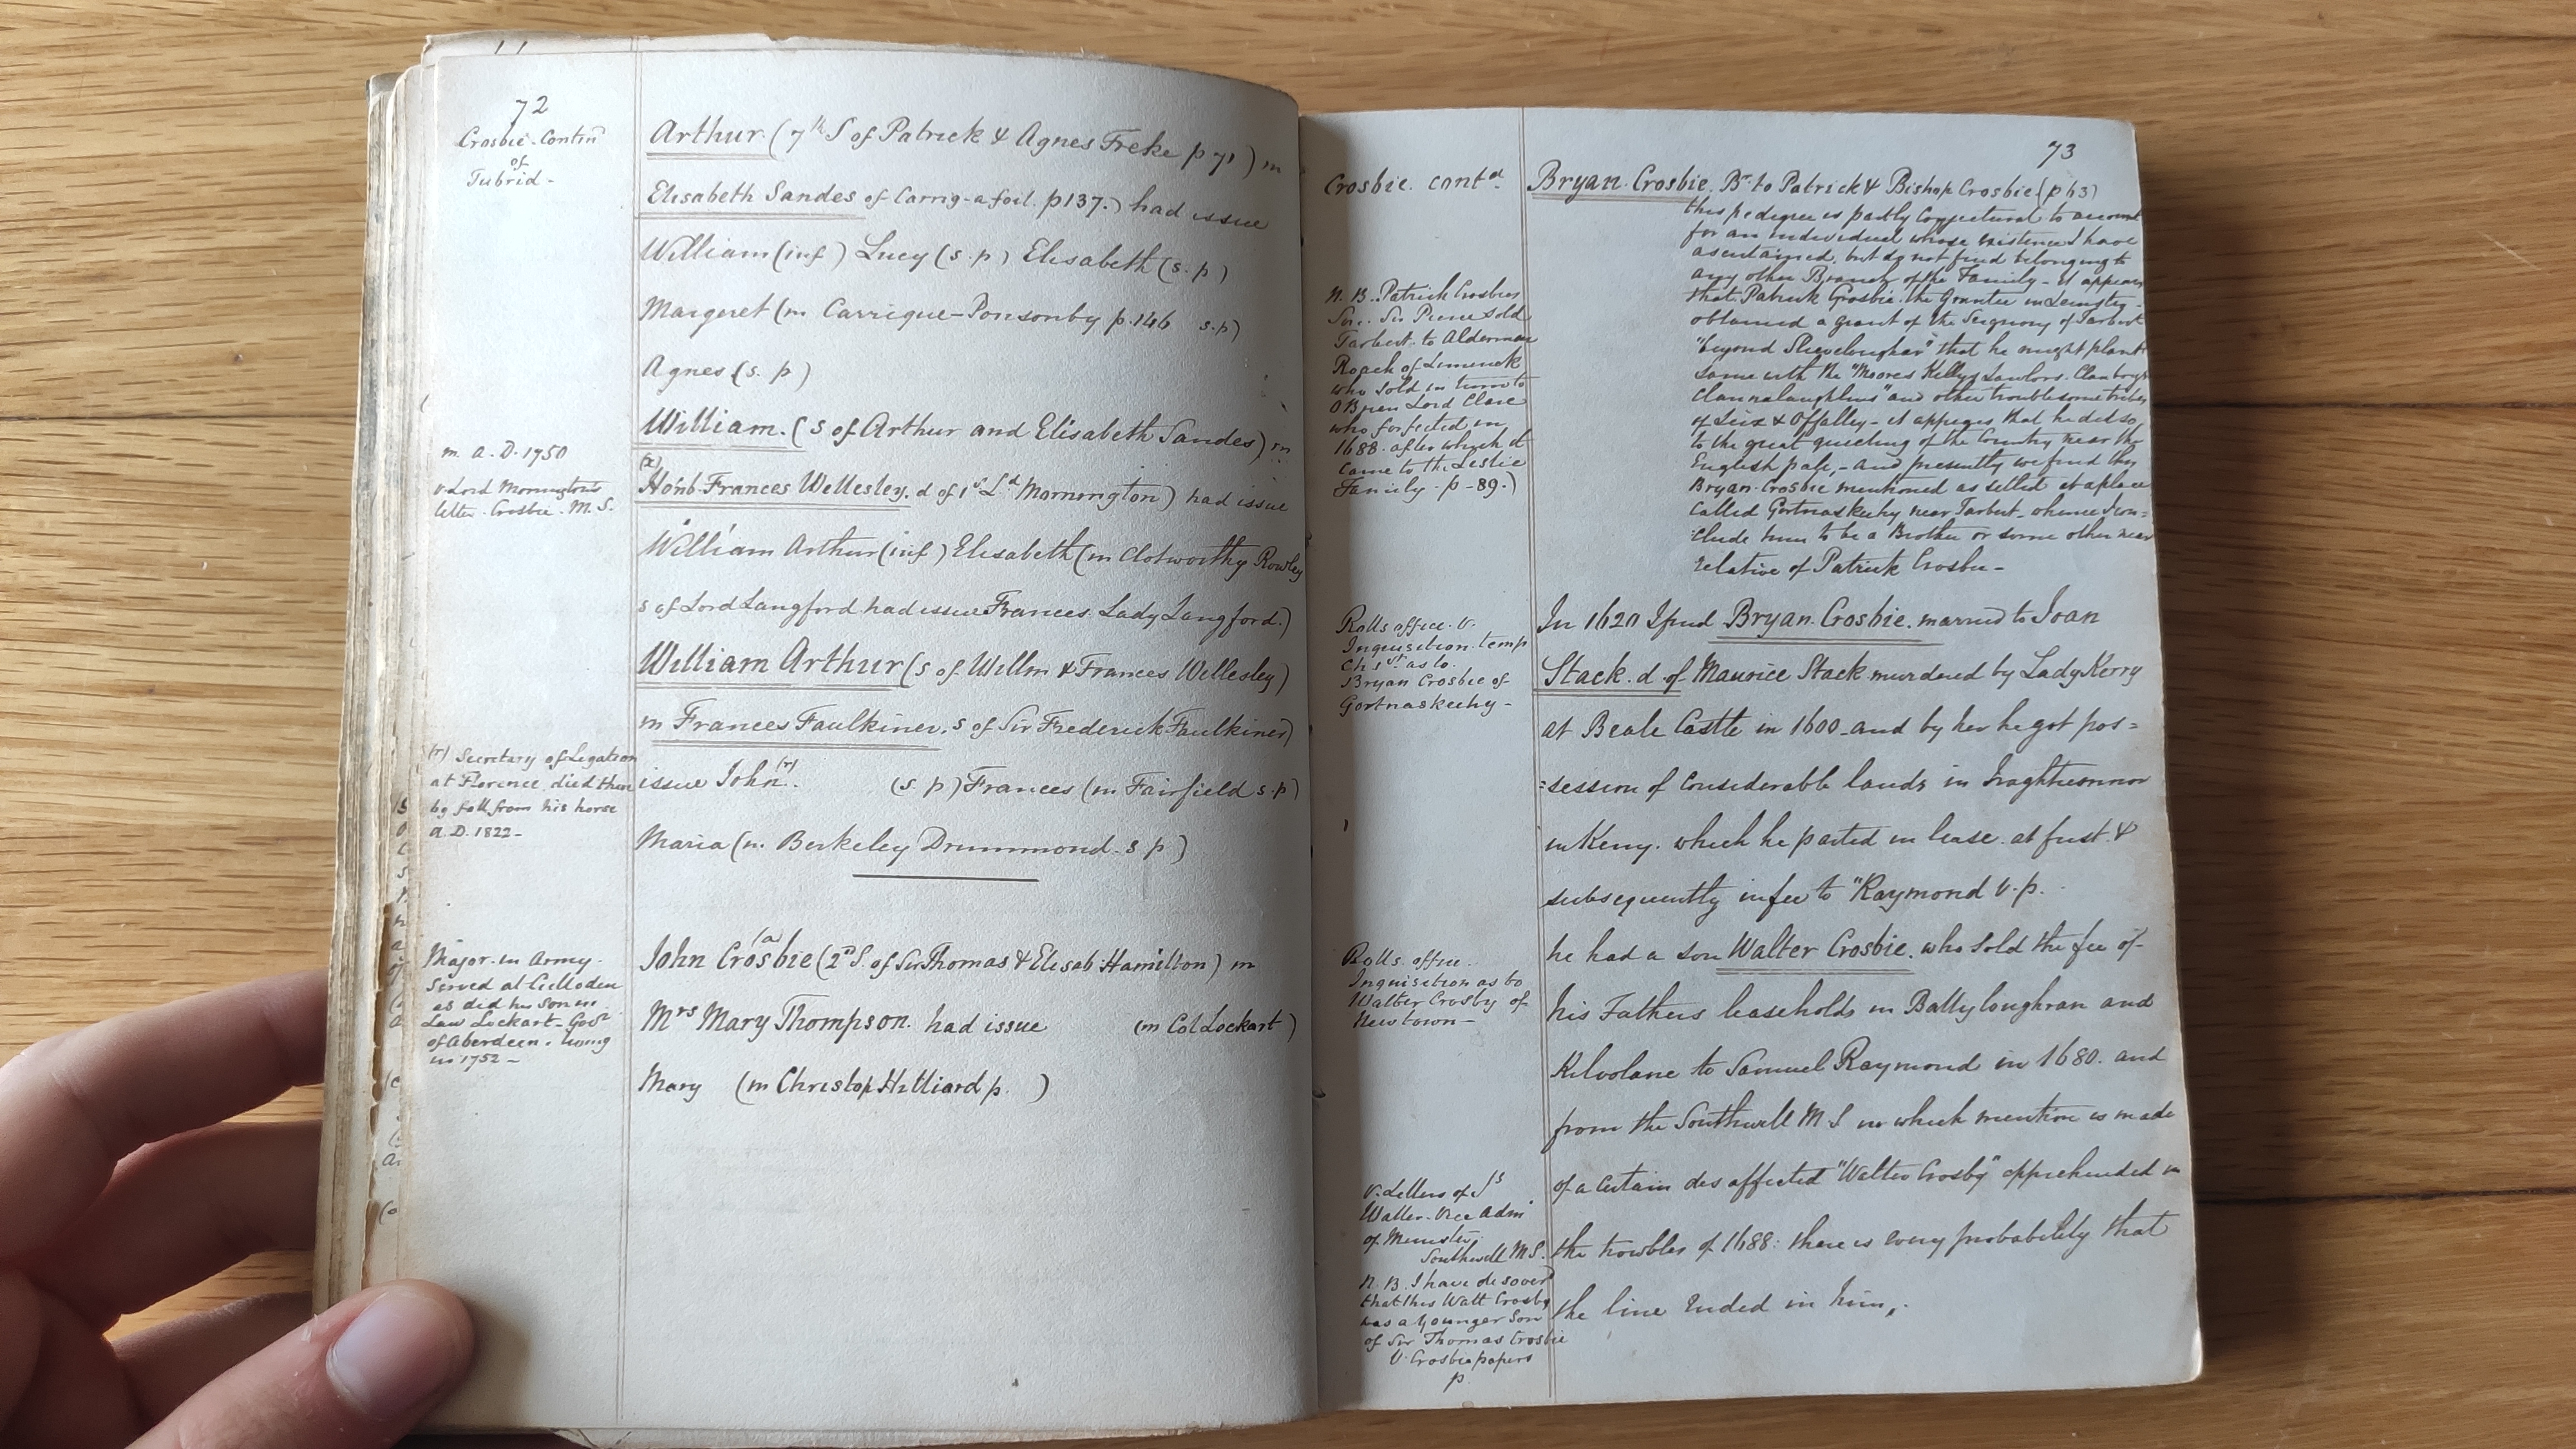 72
Crosbie - Contin^d
of
Tubrid -
Arthur (7^th S of Patrick & Agnes Freke p 71) m
Elisabeth Sandes of Carrig-a foil. p 137.) had issue
William (inf) Lucy (s. p) Elisabeth (s. p)
Margeret (m Carrique-Ponsonby p. 146 s. p)
Agnes (s. p)
William. (S of Arthur and Elisabeth Sandes) m
m. A. D. 1750
v Lord Mornington's
letter. Crosbie. M. S.
(x)
Honb. Frances Wellesley. d of 1^st L^d Mornington) had issue
William Arthur (inf) Elisabeth (m Clotworthy Rowley
s of Lord Langford had issue Frances. Lady Langford.)
William Arthur (s of Willm & Frances Wellesley)
m Frances Faulkiner, s of Sir Frederick Faulkiner)
(r) Secretary of Legation
at Florence died there
by fall from his horse
A. D. 1822 -
issue John (r). (s. p) Frances (m Fairfield s. p)
Maria (m. Berkeley Drummond. s p)
Major. in Army.
Served at Culloden
as did his son in
Law Lockart - Gov^r
of Aberdeen. living
in 1752 -
(a)
John Crosbie (2^nd S. of Sir Thomas & Elisab: Hamilton) m
M^rs Mary Thompson. had issue (m Col Lockart)
Mary (m Christop Hilliard p. )
73
Crosbie. cont^d.
Bryan. Crosbie. B^r. to Patrick & Bishop Crosbie (p 63)
this pedigree is partly Conjectural to account
for an individual whose existence I have
ascertained, but do not find belonging to
any other Branch of the Family - it appears
that. Patrick Crosbie. the Grantee in Leinster -
obtained a grant of the Seignory of Tarbert
"beyond Slievelougher" that he might plant
same with the "Moores Kellys Lawlors. Clanboys
Clannalaughlins" and other troublesome tribes
of Leix & Offalley - it appears that he did so,
to the great quieting of the Country near the
English pale, - and presently we find this
Bryan. Crosbie mentioned as settled at a place
Called Gortnaskeehy near Tarbert - whence I con=
clude him to be a Brother or some other near
relative of Patrick Crosbie -
N. B. Patrick Crosbies
Son. Sir Pierce sold
Tarbert. to Alderman
Roach of Limerick
who sold in turn to
O Brien Lord Clare
who forfeited in
1688. after which it
came to the Leslie
Family. p - 89.)
Rolls office. v.
Inquisition. temp
Ch 1^st as to.
Bryan Crosbie of
Gortnaskeehy -
In 1620 I find Bryan. Crosbie. married to Joan
Stack. d. of Maurice Stack. murdered by Lady Kerry
at Beale Castle in 1600 - and by her he got pos=
=session of Considerable lands in Iraghticonnor
in Kerry. which he parted in lease. at first. &
subsequently in fee to "Raymond v. p.
he had a son Walter Crosbie. who sold the fee of -
his Fathers leaseholds in Ballyloughran and
Kilvolane to Samuel Raymond in 1680. and
from the Southwell M. S in which mention is made
of a certain des affected "Walter Crosby" apprehended in
the troubles of 1688: there is every probability that
the line Ended in him,.
Rolls. office.
Inquisition as to
Walter Crosby of
Newtown -
v. Letters of
Waller. Vice Adm^l
of Munster.
Southwell MS.
N. B. I have discover^d
that this Walt Crosby
was a Younger Son
of Sir Thomas Crosbie
v. Crosbie papers
p.